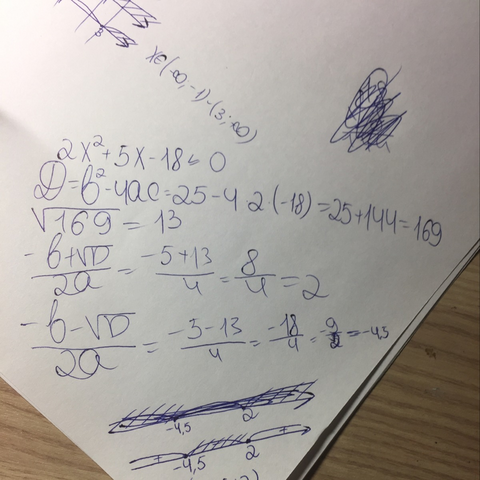 x∈(-∞,-1)-(3;∞)
2x²+5x-18<0
D=b²-4ac=25-4·2(-18)=25+144=169
√169=13
-b+√D/2a = -5+13/4 = 8/4 = 2
-b-√D/2a = -5-13/4 = -18/4 = -9/2 = -4,5
-4,5 2
+ - +
-4,5 2